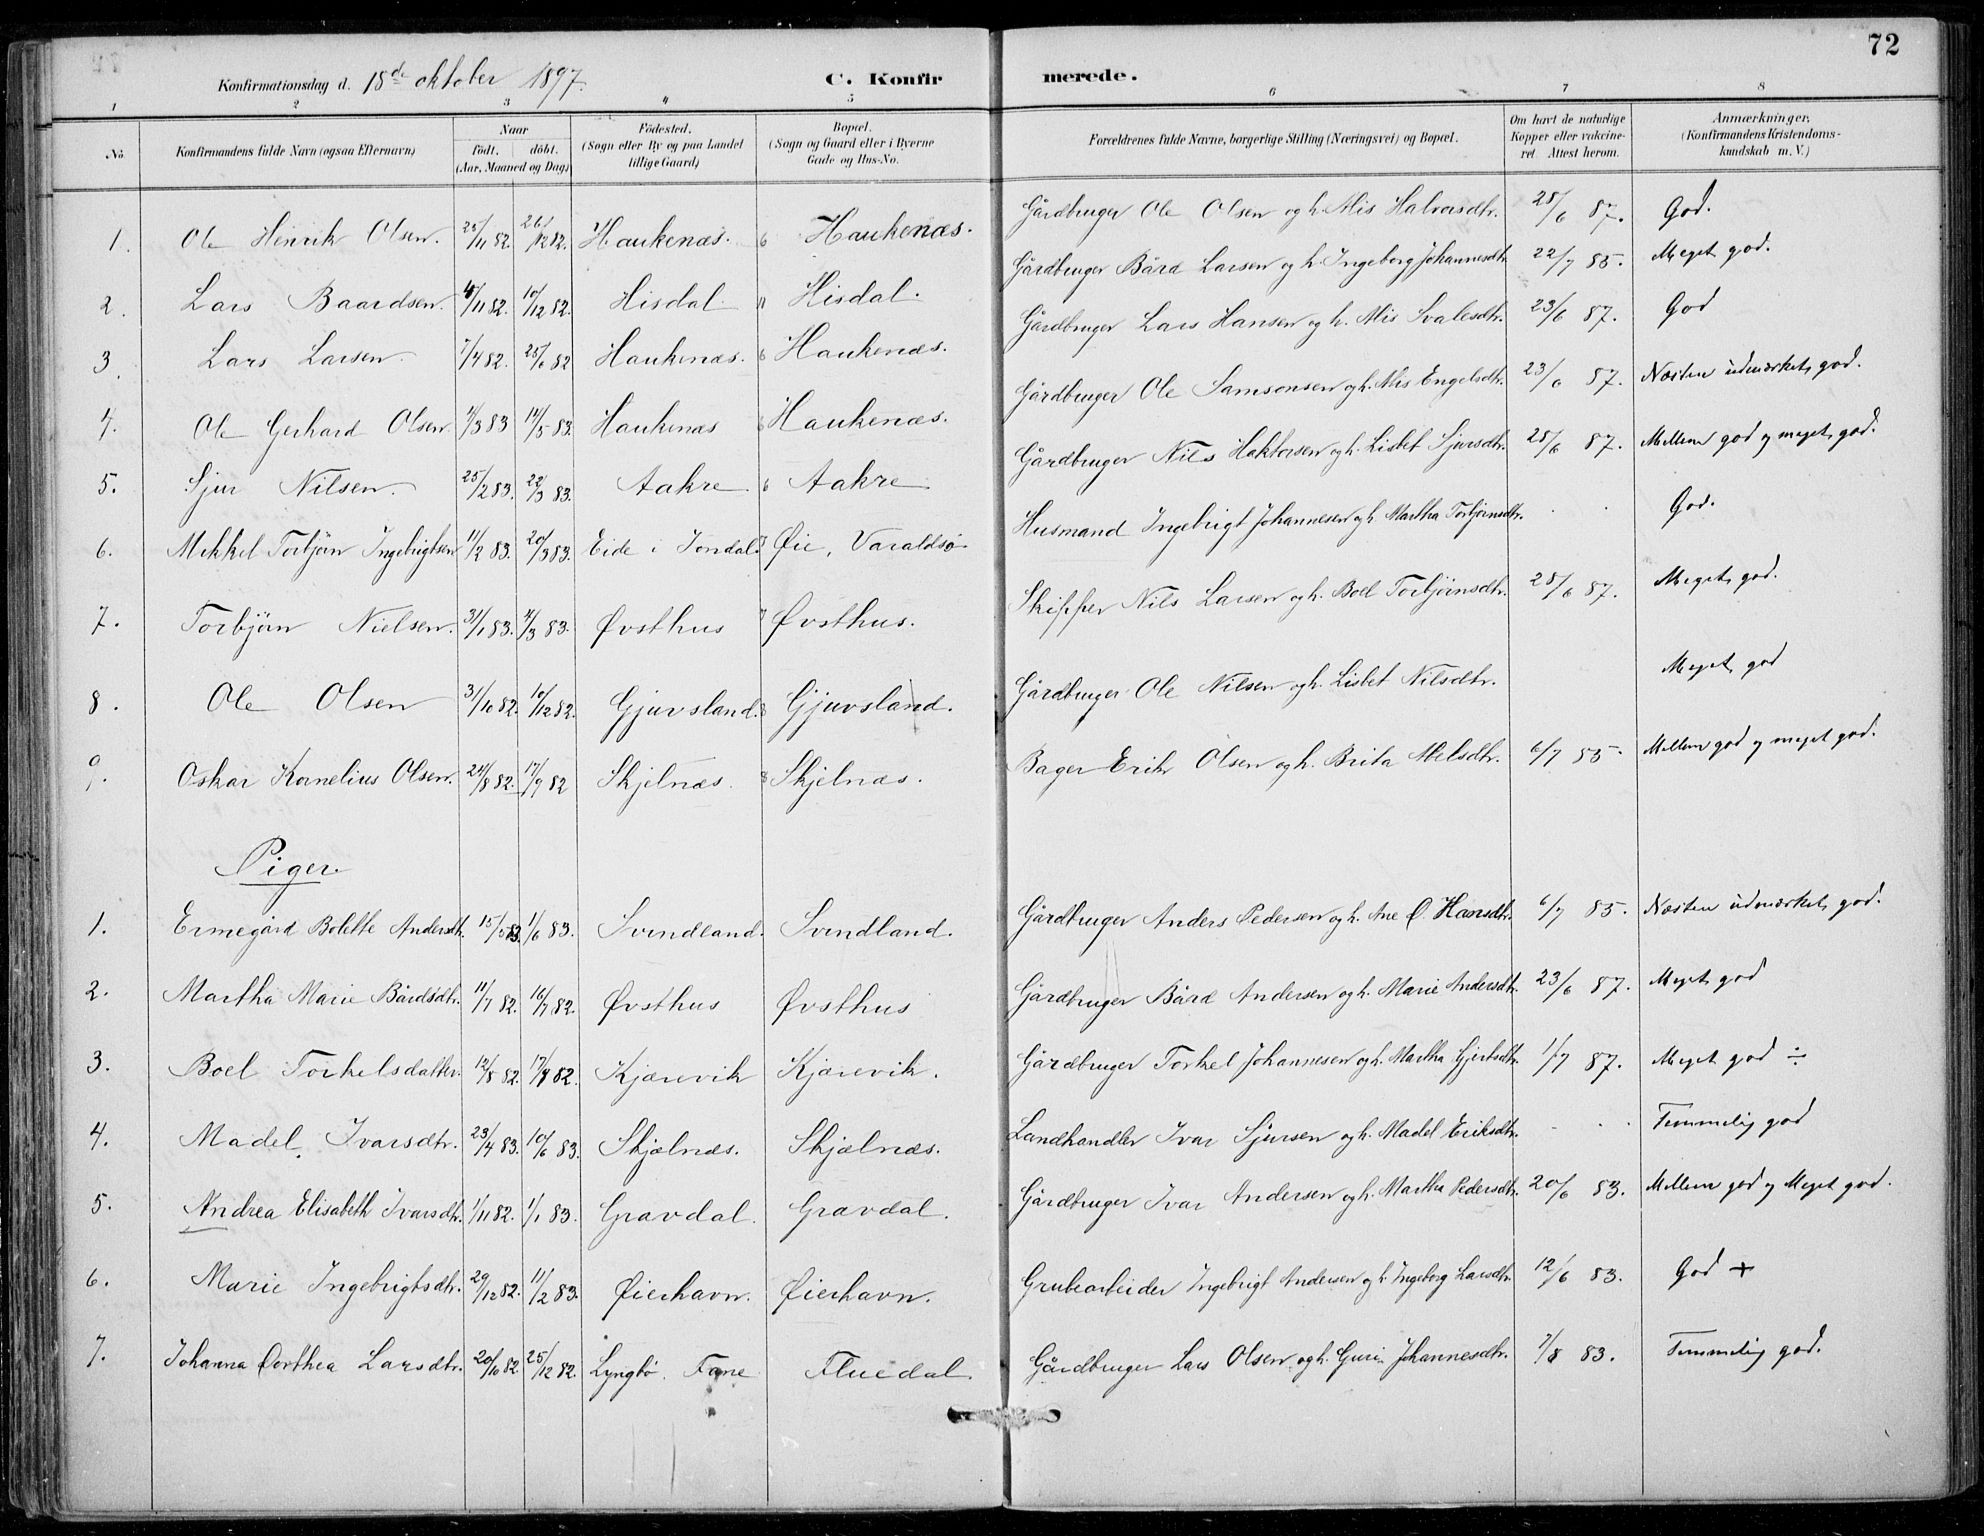 72
Konfirmationsdag d. 18de oktober 1897. C. Konfirmerede.
1 2 3 4 5 6 7 8
No. Konfirmandens fulde Navn (ogsaa Efternavn) Naar födt. döbt. (Aar, Maaned og Dag) Födested. (Sogn eller By og paa Landet tillige Gaard) Bopæl. (Sogn og Gaard eller i Byerne Gade og Hus-No. Forældrenes fulde Navne, borgerlige Stilling (Næringsvei) og Bopæl. Om havt de naturlige Kopper eller vakcineret. Attest herom. Anmærkninger. (Konfirmandens Kristendomskundskab m. V.)
1. Ole Henrik Olsen. 25/11 82. 26/12 82. Haukenæs. 6 Haukenæs. Gårdbruger Ole Olsen og h. Alis Halvorsdtr. 28/6 87. God.
2. Lars Baardsen. 4/11 82. 10/12 82. Hisdal Hisdal. Gårdbruger Bård Larsen og h. Ingeborg Johannesdtr. 22/7 85. Meget god.
3. Lars Larsen 7/4 82. 25/6 82 Haukenæs. 6 Haukenæs. Gårdbruger Lars Hansen og h. Alis Svalesdtr. 23/6 87. God
4. Ole Gerhard Olsen 4/3 83 14/5 83. Haukenæs 6 Haukenæs. Gårdbruger Ole Samsonsen og h. Alis Engelsdtr. 23/6 87. Næsten udmærket god.
5. Sjur Nilsen. 25/2 83. 22/3 83. Aakre 6 Aakre Gårdbruger Nils Haktorsen og h. Lisbet Sjursdtr. 28/6 87. Mellem god og meget god.
6. Mikkel Torbjörn Ingebrigtsen 11/2 83. 20/3 83. Eide i Jondal. Øie, Varaldsö. Husmand Ingebrigt Johannesen og h. Martha Torbjörnsdtr. God.
7. Torbjörn Nielsen. 31/1 83. 4/3 83. Øvsthus Øvsthus. Skipper Nils Larsen og h. Boel Torbjörnsdtr. 28/6 87. Meget god.
8. Ole Olsen 31/10 82. 10/12 82. Gjuvsland. 8 Gjuvsland. Gårdbruger Ole Nilsen og h. Lisbet Nilsdtr. Meget god
9. Oskar Kornelius Olsen. 24/8 82. 17/9 82 Skjelnæs. 8 Skjelnæs. Bager Erik Olsen og h. Brita Melsdtr. 6/7 85. Mellem god og meget god.
Piger
1. Ermegård Bolette Andersdtr. 15/5 83. 1/6 83. Svindland. Svindland. Gårdbruger Anders Pedersen og h. Ane O. Hansdtr. 6/7 85. Næsten udmærket god.
2. Martha Marie Bårdsdtr. 11/7 82. 16/7 82. Øvsthus Øvsthus Gårdbruger Bård Andersen og h. Marie Andersdtr. 23/6 87. Meget god
3. Boel Torkelsdatter. 12/8 82. 17/9 82. Kjærevik Kjærevik. Gårdbruger Torkel Johannesen og h. Martha Gjertsdtr. 1/7 87. Meget god ÷
4. Madel Ivarsdtr. 23/4 83. 10/6 83. Skjælnæs. Skjælnæs. Landhandler Ivar Sjursen og h. Madel Eriksdtr. Temmelig god
5. Andrea Elisabeth Ivarsdtr. 1/11 82. 1/1 83. Gravdal. Gravdal. Gårdbruger Ivar Andersen og h. Martha Pedersdtr. 20/6 83. Mellem god og Meget god.
6. Marie Ingebrigtsdtr. 29/12 82. 11/2 83. Øierhavn. Øierhavn. Grubearbeider Ingebrigt Andersen og h. Ingeborg Larsdtr. 12/6 83. God +
7. Johanna Dorthea Larsdtr. 20/10 82. 25/12 82. Lyngbö. Fane Fluedal Gårdbruger Lars Olsen og h. Guri Johannesdtr. 7/8 83. Temmelig god.